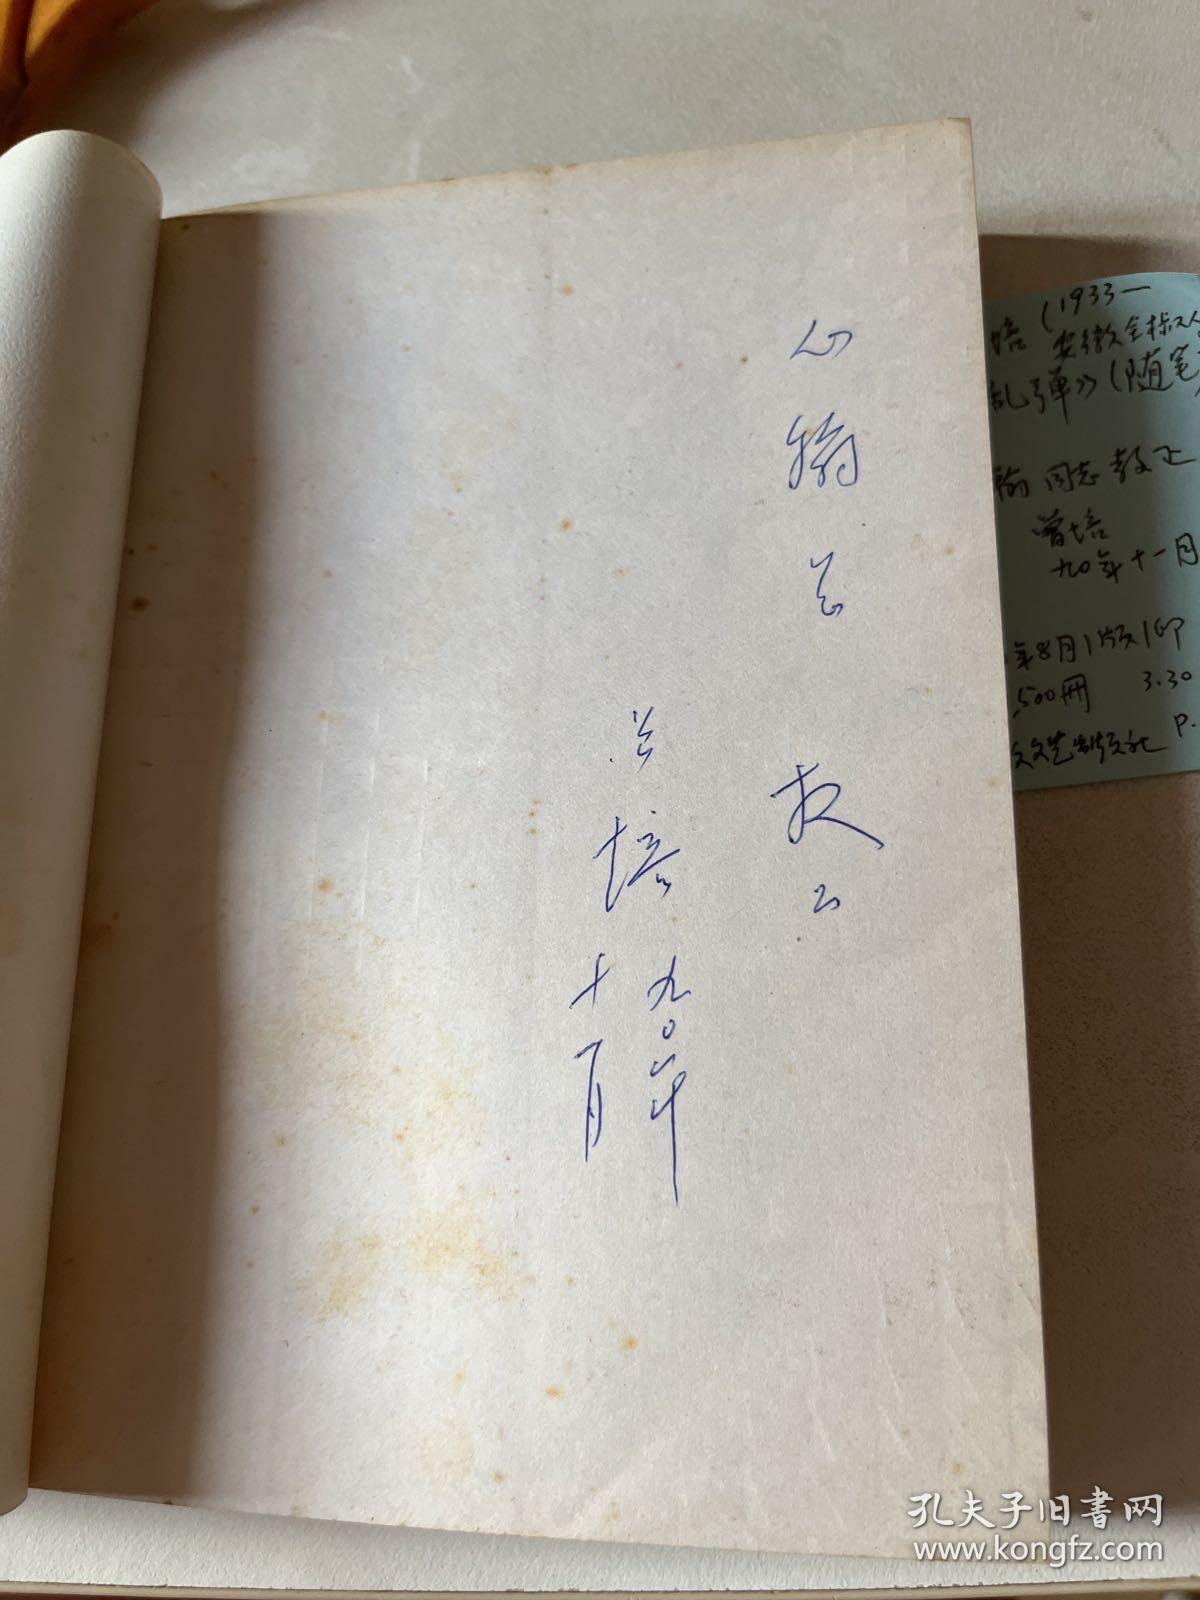 心翰同志 教正
曾培
九〇年
十一月
培 (1933—
安徽全椒人
乱弹》(随笔
翰 同志 教正
曾培
九〇年十一月
年8月1版1印
,500册 3.30
文艺出版社 P.
孔夫子旧書网
www.kongfz.com